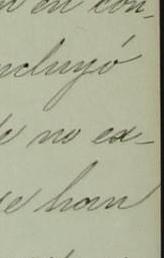 en con-
ncluyó
de no ex-
ue han